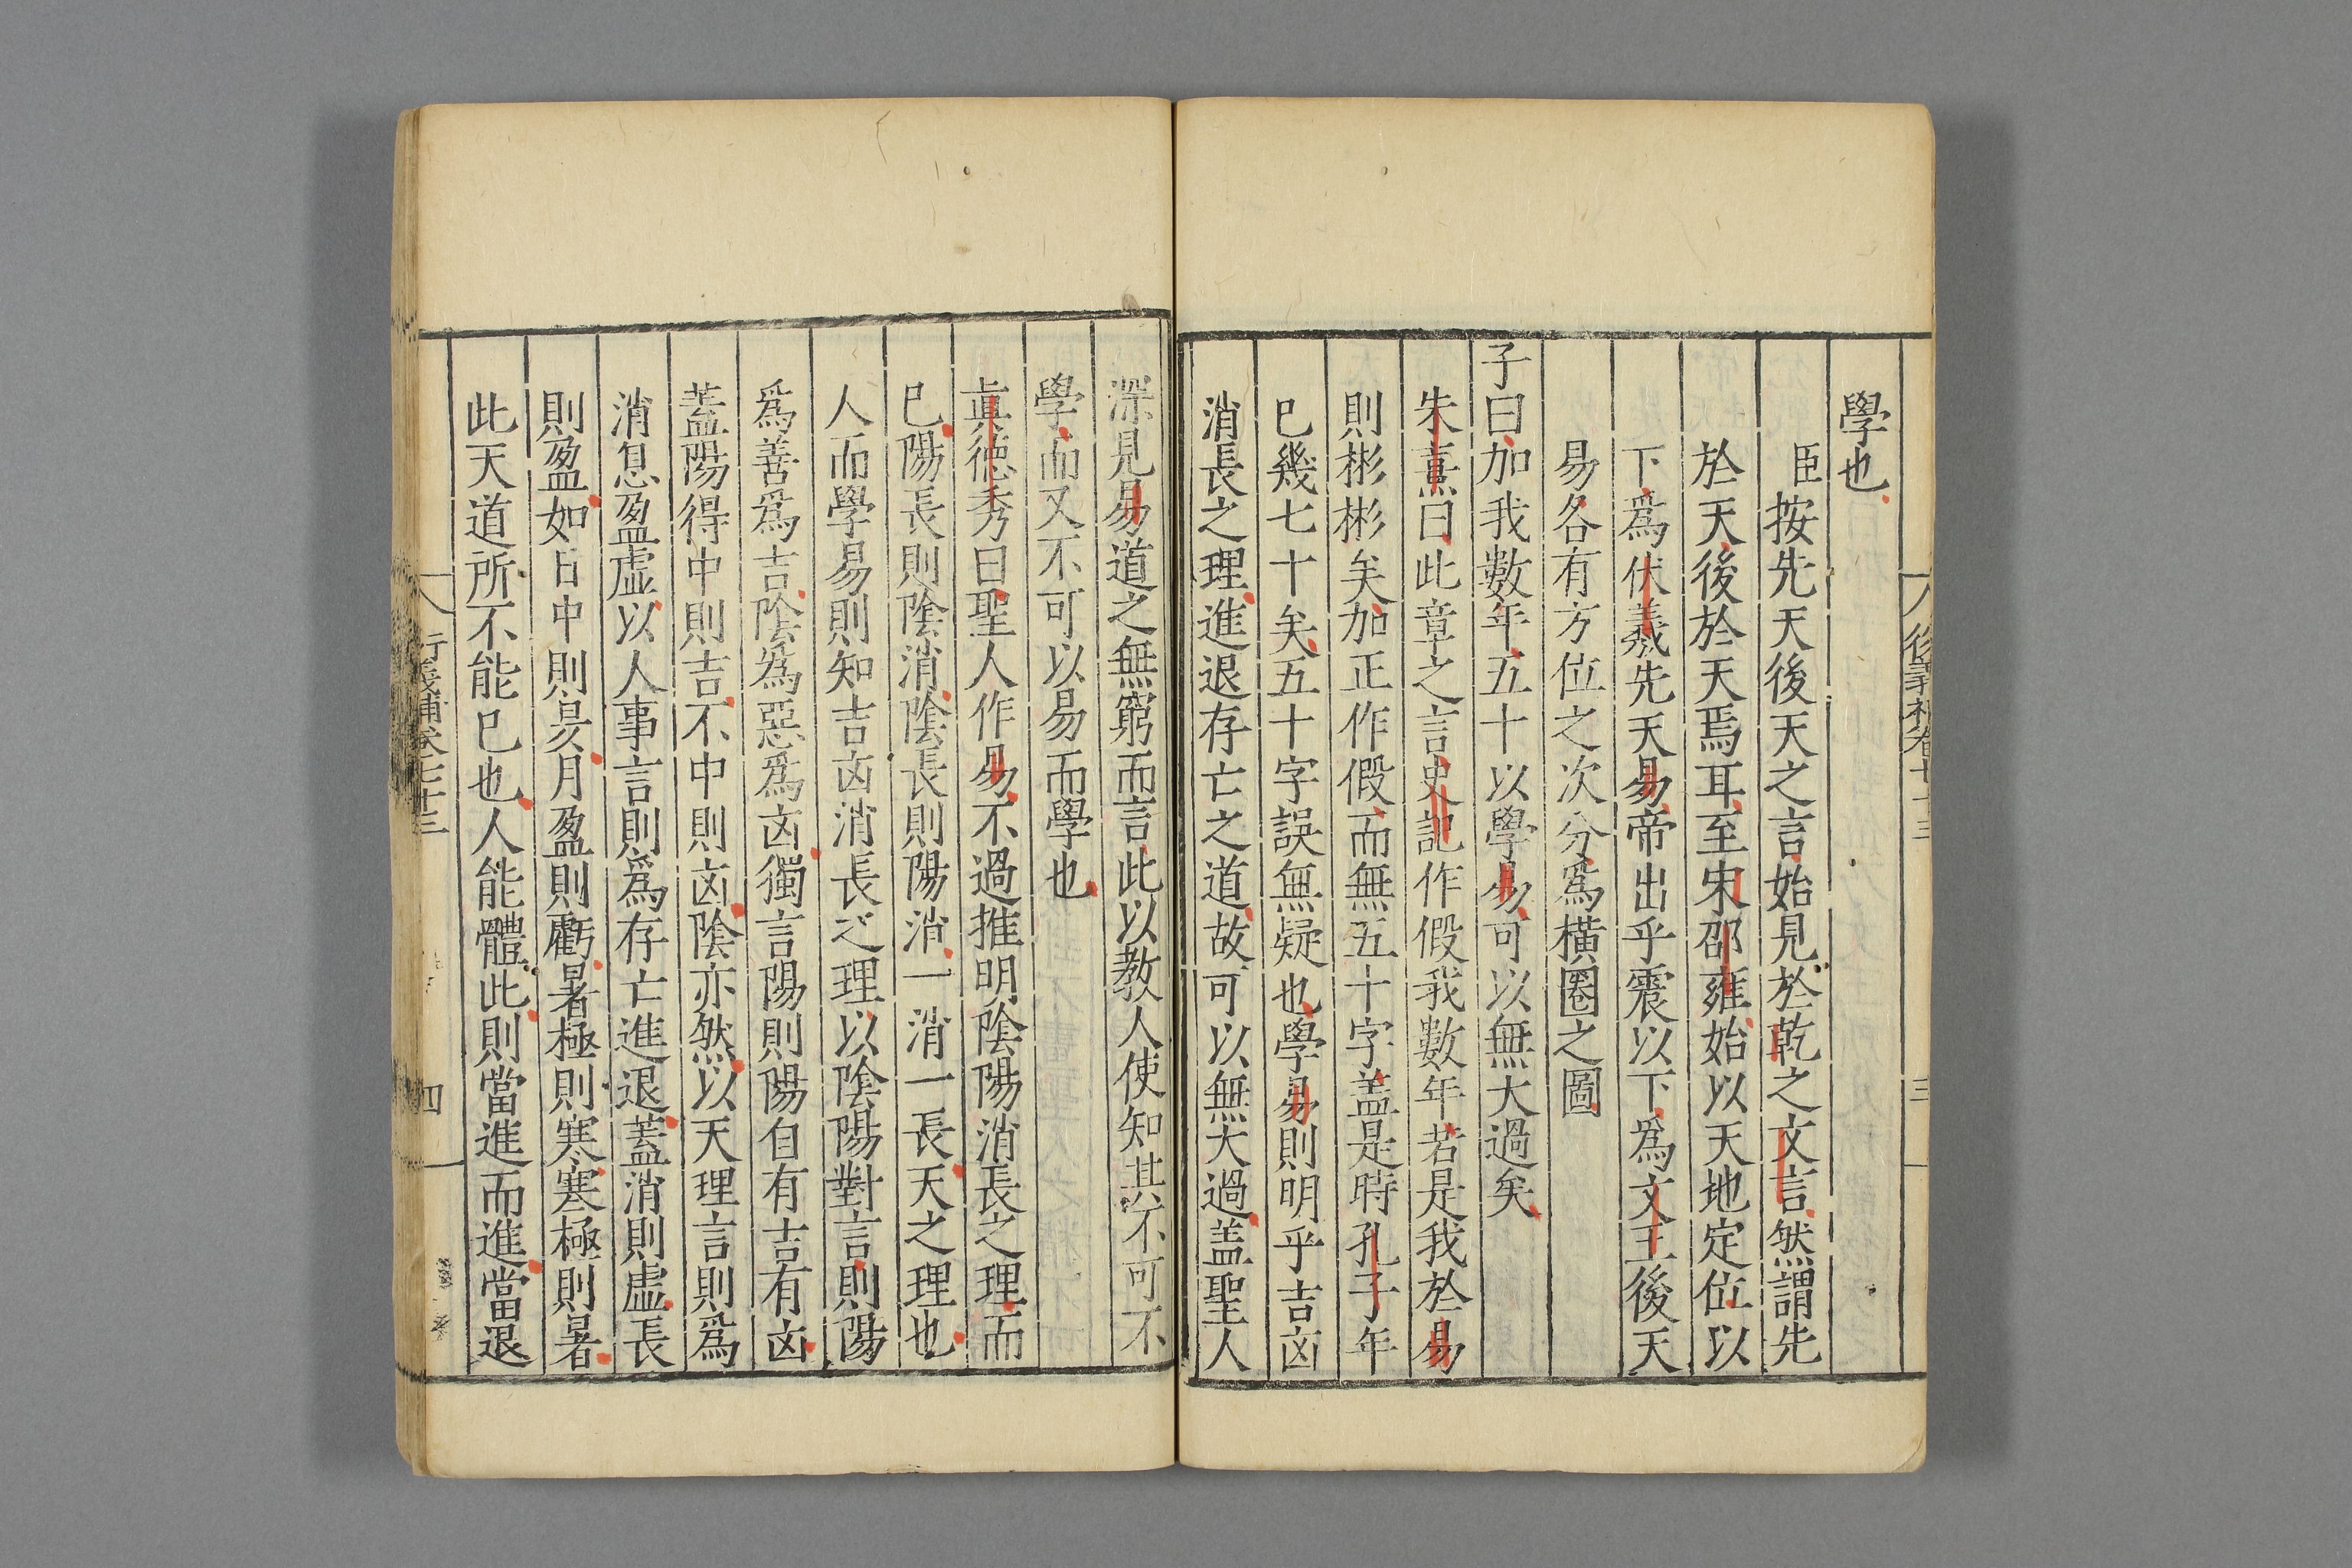 學也
臣按先天後天之言始見於乾之文言然謂先
於天後於天焉耳至宋邵雍始以天地定位以
下爲伏羲先天易帝出乎震以下爲文王後天
易各有方位之次分爲橫圈之圖
子曰加我數年五十以學易可以無大過矣
朱熹曰此章之言史記作假我數年若是我於易
則彬彬矣加正作假而無五十字盖是時孔子年
已幾七十矣五十字誤無疑也學易則明乎吉凶
消長之理進退存亡之道故可以無大過盖聖人
深見易道之無窮而言此以教人使知其不可不
學而又不可以易而學也
真德秀曰聖人作易不過推明陰陽消長之理而
已陽長則陰消陰長則陽消一消一長天之理也
人而學易則知吉凶消長之理以陰陽對言則陽
爲善爲吉陰爲惡爲凶獨言陽則陽自有吉有凶
蓋陽得中則吉不中則凶陰亦然以天理言則爲
消息盈虛以人事言則爲存亡進退蓋消則虛長
則盈如日中則昃月盈則虧暑極則寒寒極則暑
此天道所不能已也人能體此則當進而進當退
衍義補卷七十三
四